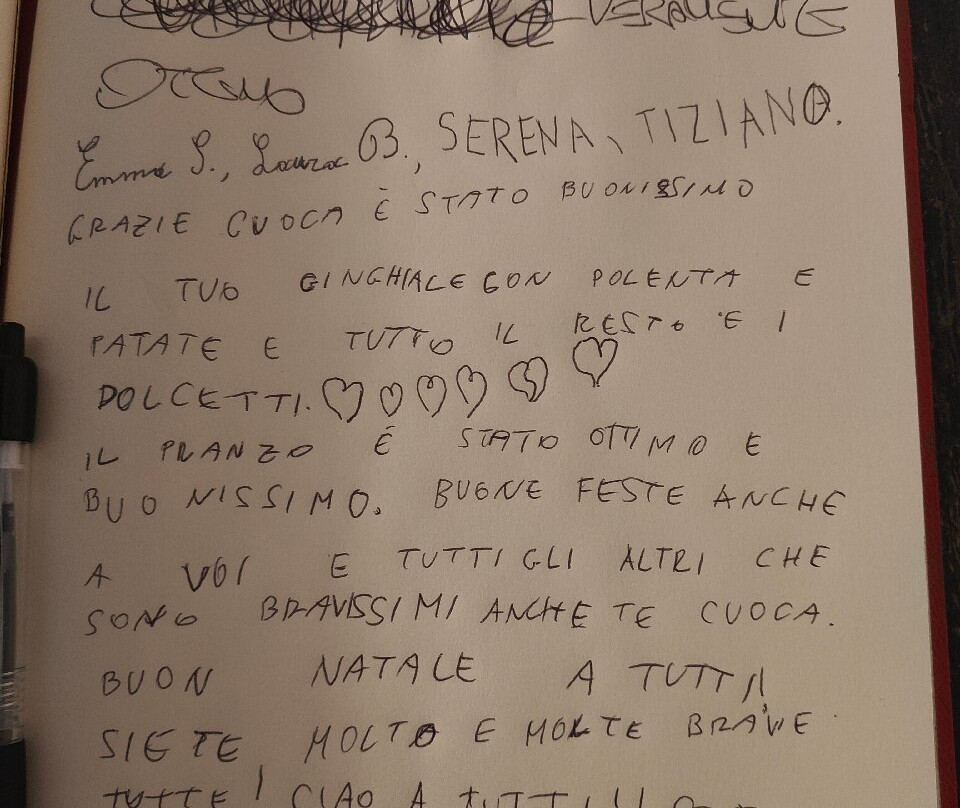 VERAMENTE
OTTIMO
Emma S., Laura B., SERENA, TIZIANO.
GRAZIE CUOCA È STATO BUONISSIMO
IL TUO CINGHIALE CON POLENTA E
PATATE E TUTTO IL RESTO E I
DOLCETTI.
IL PRANZO É STATO OTTIMO E
BUONISSIMO. BUONE FESTE ANCHE
A VOI E TUTTI GLI ALTRI CHE
SONO BRAVISSIMI ANCHE TE CUOCA.
BUON NATALE A TUTTI!
SIETE MOLTO E MOLTE BRAVE
TUTTE! CIAO A TUTTI!!